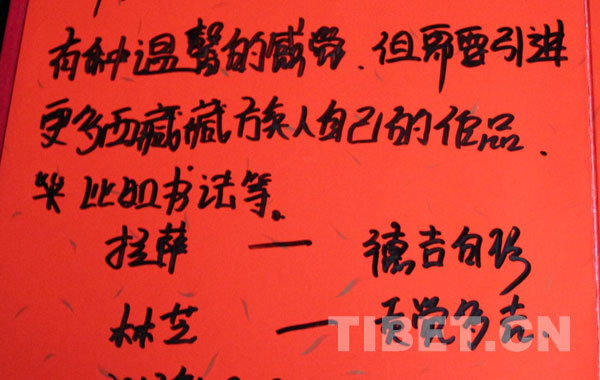 有种温馨的感觉、但需要引进
更多西藏藏族人自己的作品、
比如书法等。
拉萨 — 德吉白珍
林芝 — 多吉
TIBET.CN